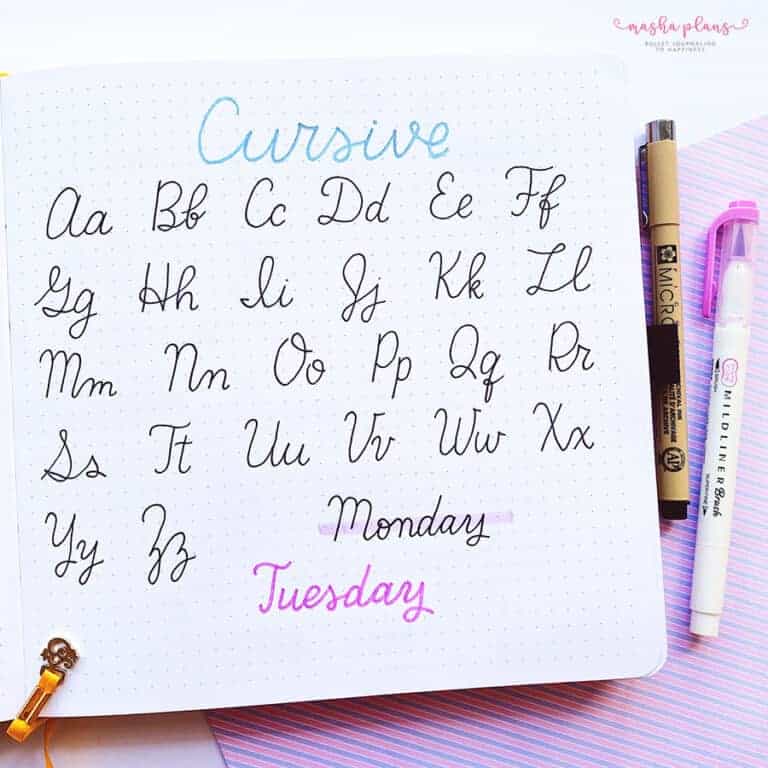 masha plans
BULLET JOURNALING
TO HAPPINESS
Cursive
Aa Bb Cc Dd Ee Ff
Gg Hh Ii Jj Kk Ll
Mm Nn Oo Pp Qq Rr
Ss Tt Uu Vv Ww Xx
Yy Zz Monday
Tuesday
MICRO
MILDLINER Brush